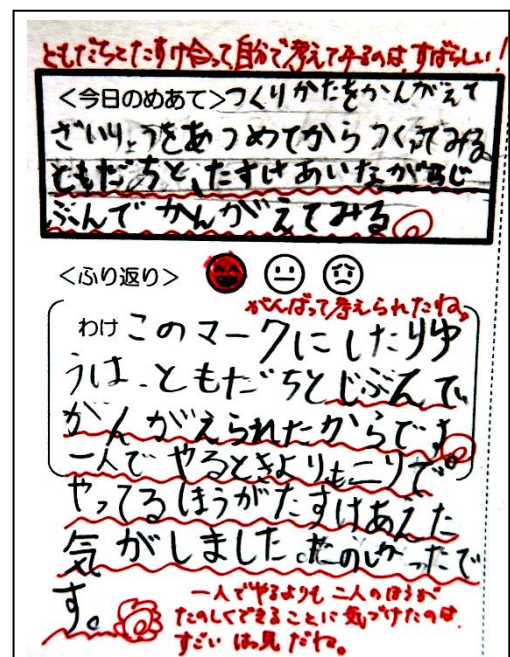 ともだちとたすけ合って自分で考えてみるのは、すばらしい！
＜今日のめあて＞つくりかたをかんがえて
ざいりょうをあつめてからつくってみる
ともだちと、たすけあいながらじ
ぶんでかんがえてみる
＜ふり返り＞
がんばって考えられたね。
わけ このマークにしたりゆ
うは、ともだちとじぶんで
かんがえられたからです。
一人でやるときよりも二りで
やってるほうがたすけあえた
気がしました。たのしかったで
す。
一人でやるよりも二人のほうが
たのしくできることに気づけたのは、
すごいはっ見だね。